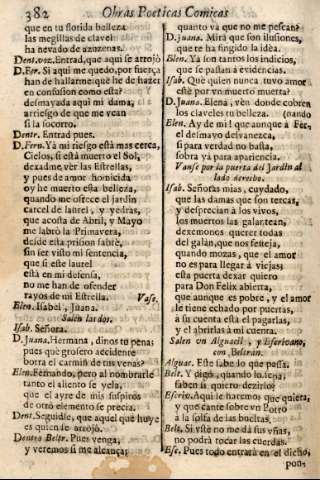 382 Obras Poeticas Comicas
que en tu florida belleza
las megillas de clavel
ha nevado de azuzenas.
Dent. voz. Entrad, que aqui se arrojò
D. Fer. Si aqui me quedo, por fuerça
han de hallarme: què he de hazer
en confusion como esta?
desmayada aqui mi dama,
arriesgo de que me vean
si la socorro.
Dentr. Entrad pues.
D. Fern. Yà mi riesgo està mas cerca,
Cielos, si està muerto el Sol,
dexadme ver las Estrellas,
y pues de amor homicida
oy he muerto esta belleza,
quando me ofrece el jardin
carcel de laurel, y yedras,
que acosta de Abril, y Mayo
me labrò la Primavera,
desde esta prision sabrè,
sin ser visto mi sentencia,
que si este laurel
està en mi defensa,
no me han de ofender
rayos de mi Estrella. Vase.
Elen. Isabel, Juana.
Salen las dos.
Isab. Señora.
D. Juana. Hermana, dinos tu penas
pues què grosero accidente
borra el carmin de tus venas?
Elen. Fernando, pero al nombrarle
tanto el aliento se yela,
que el ayre de mis suspiros
de otro elemento se precia.
Dent. Seguidle, que aquel que huye
es quien se arrojò.
Dentro Beltr. Pues venga,
y veremos si me alcança;
quanto và que no me pescan?
D. Juana. Mira que son ilusiones,
que te ha fingido la idèa.
Elen. Yà son tantos los indicios,
que se passan à evidencias.
Isab. Què quien nunca tuvo amor
estè por vn muerto muerta?
D. Juana. Elena, vèn donde cobren
los claveles tu belleza. (nando
Elen. Ay de mi! que aunque à Fer-
el desmayo desvanezca,
si para verdad no basta,
sobra yà para apariencia.
Vanse por la puerta del Jardin al
lado derecho.
Isab. Señoras mias, cuydado,
que las damas que son tercas,
y desprecian à los vivos,
los muertos las galantean,
dexemonos querer todas
del galàn, que nos festeja,
quando mozas, que el amor
no es para llegar à viejas;
esta puerta dexar quiero
para Don Felix abierta,
que aunque es pobre, y el amor
le tiene echado por puertas,
à su cuenta està el pagarlas,
y el abrirlas à mi cuenta.
Salen vn Alguacil, y Escrivano,
con Beltràn.
Alguac. Este sabe lo que passa.
Belt. Y digo, quando lo sepa,
saben si quiero dezirlo?
Escriv. Aqui le harèmos que quiera,
y que cante sobre vn Potro
à la solfa de las bueltas.
Belt. Si vste no me dà sus vñas,
no podrà tocar las cuerdas.
Esc. Pues todo entrarà en el dicho,
pon-